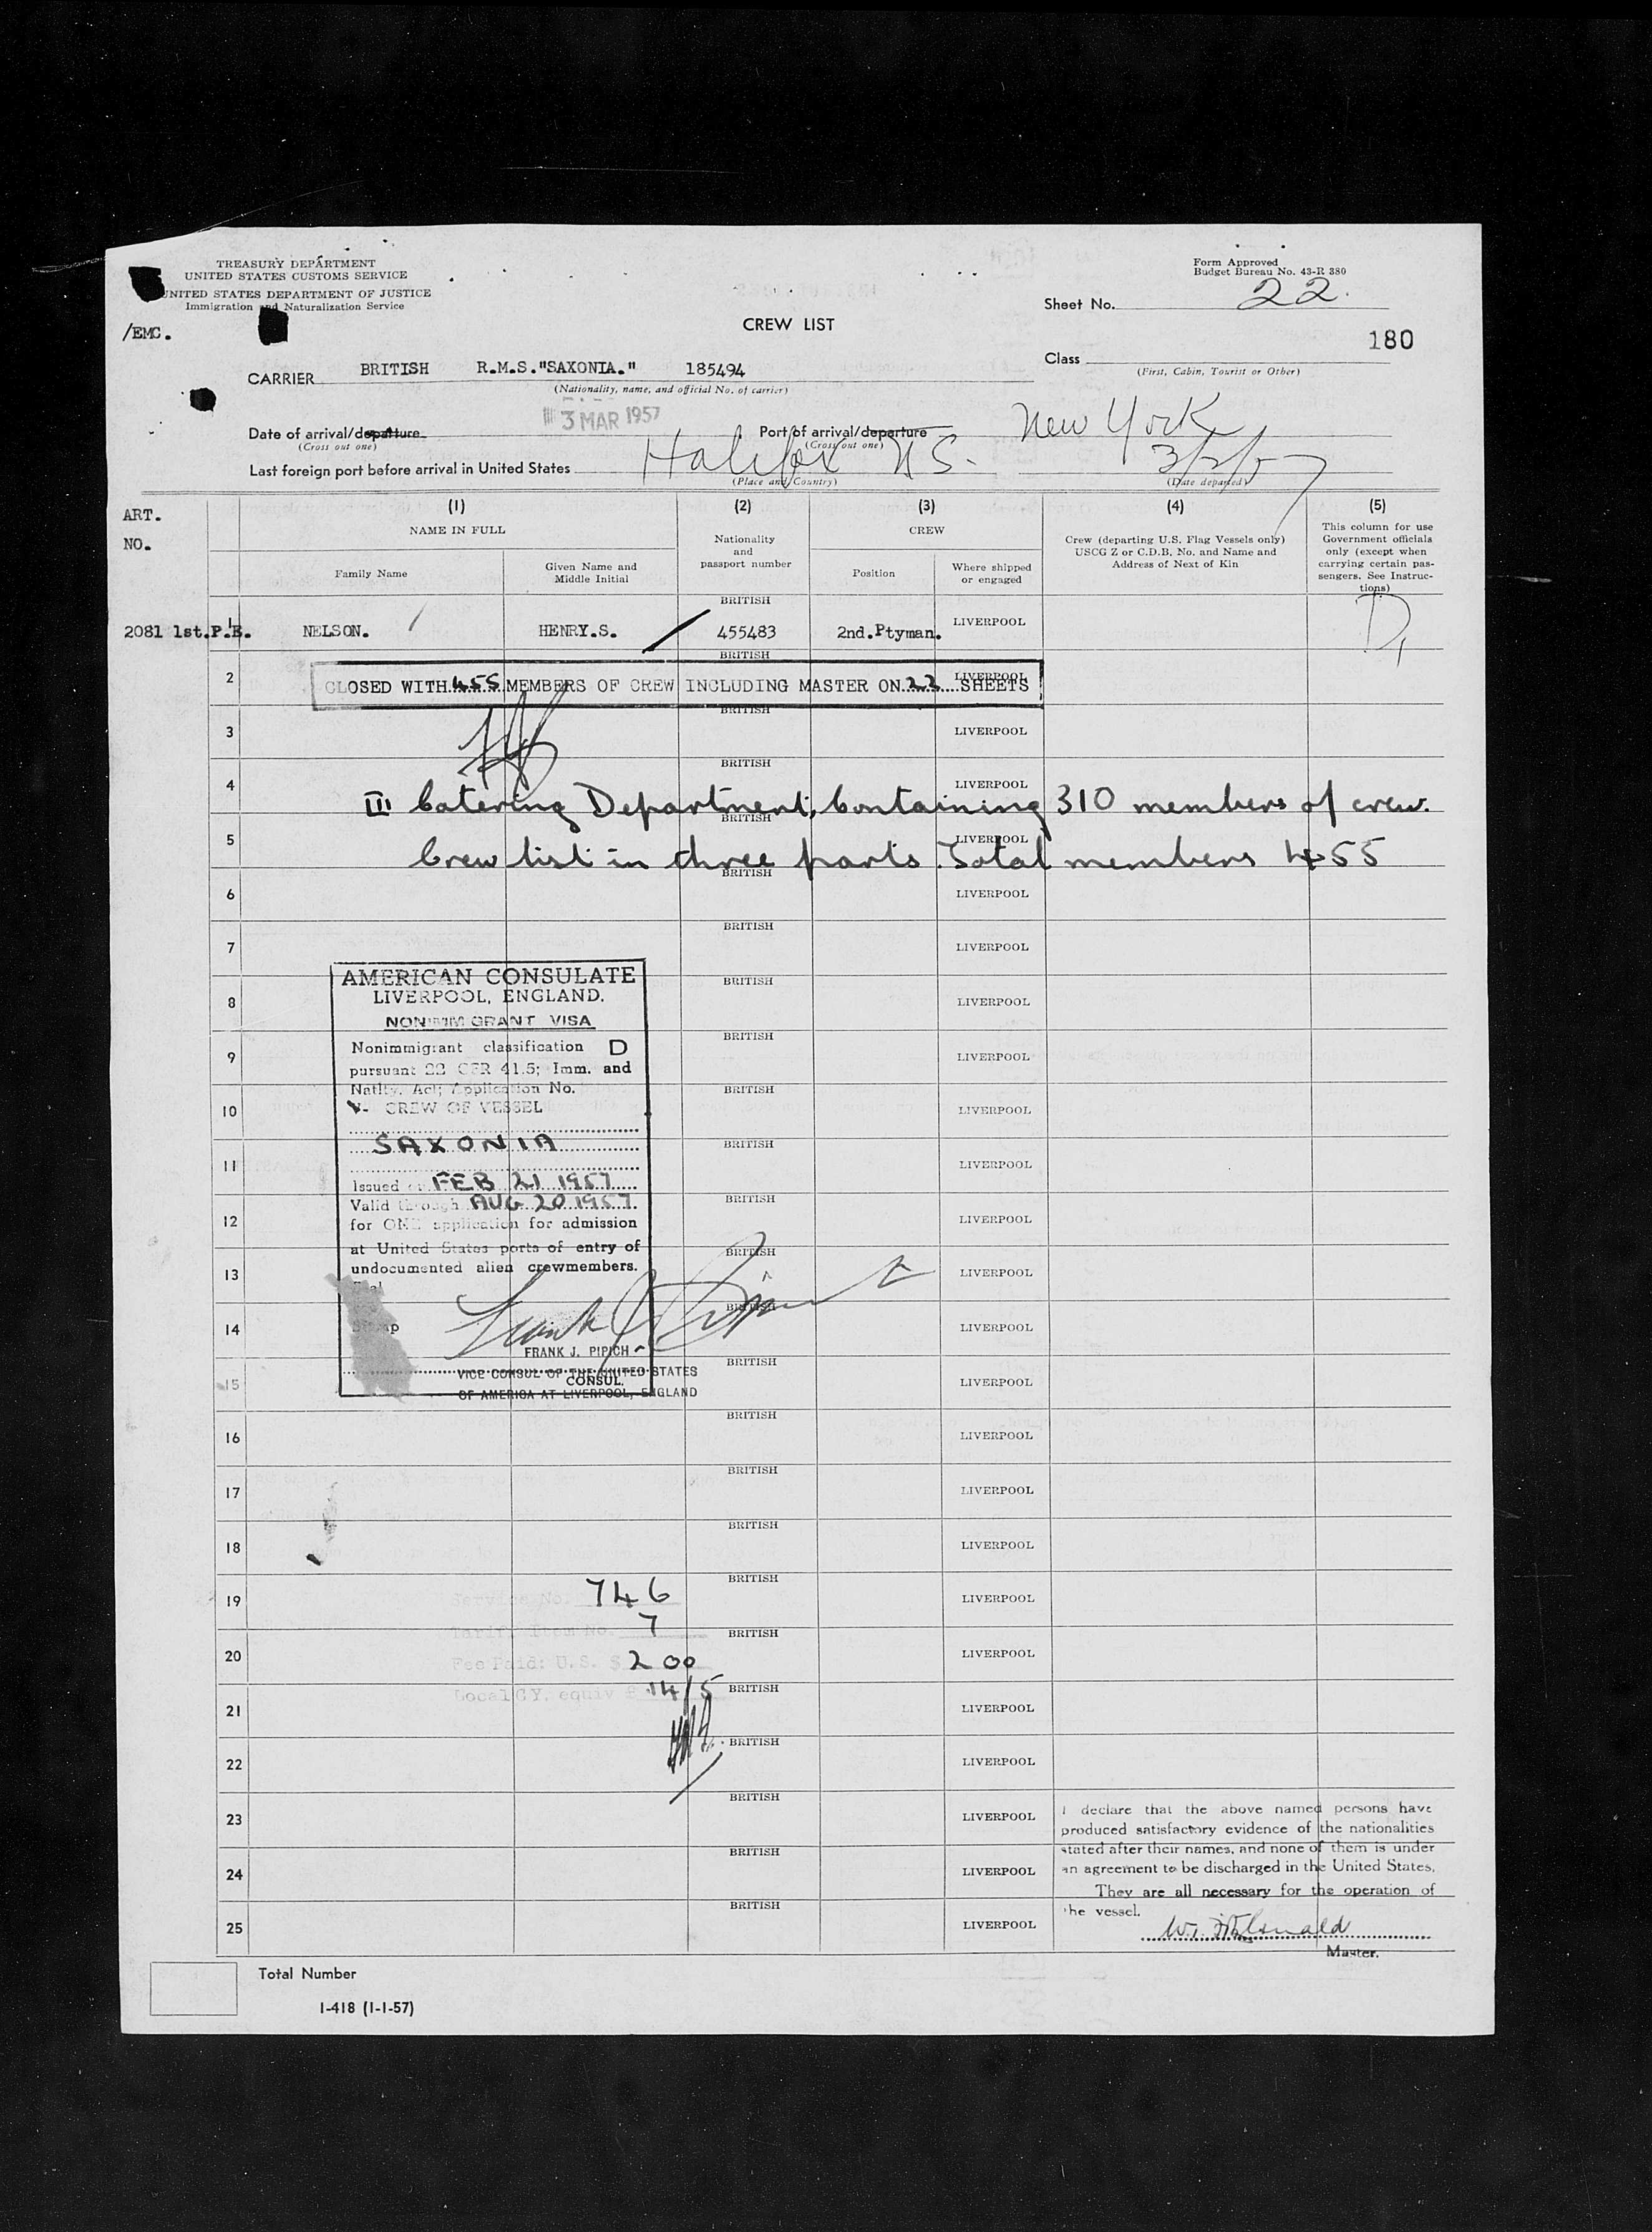 TREASURY DEPARTMENT
UNITED STATES CUSTOMS SERVICE
UNITED STATES DEPARTMENT OF JUSTICE
Immigration and Naturalization Service
/EMC.
Form Approved
Budget Bureau No. 43-R 380
Sheet No. 22.
CREW LIST
180
Class
(First, Cabin, Tourist or Other)
CARRIER BRITISH R.M.S."SAXONIA." 185494
(Nationality, name, and official No. of carrier)
3 MAR 1957
Date of arrival/departure Port of arrival/departure New York
(Cross out one) (Cross out one)
Last foreign port before arrival in United States Halifax N.S. 3/2/57
(Place and Country) (Date departed)
ART. NO.
(1) (2) (3) (4) (5)
NAME IN FULL
Family Name
Given Name and Middle Initial
Nationality and passport number
CREW
Position
Where shipped or engaged
Crew (departing U.S. Flag Vessels only)
USCG Z or C.D.B. No. and Name and
Address of Next of Kin
This column for use
Government officials
only (except when
carrying certain pas-
sengers. See Instruc-
tions)
BRITISH
2081 1st.P.E. 1 NELSON. HENRY.S. 455483 2nd.Ptyman. LIVERPOOL D
BRITISH
2 LIVERPOOL
CLOSED WITH 455 MEMBERS OF CREW INCLUDING MASTER ON 22 SHEETS
BRITISH
3 LIVERPOOL
BRITISH
4 LIVERPOOL
III Catering Department, Containing 310 members of crew.
BRITISH
5 LIVERPOOL
Crew list in three parts. Total members 455
BRITISH
6 LIVERPOOL
BRITISH
7 LIVERPOOL
AMERICAN CONSULATE
LIVERPOOL, ENGLAND.
NONIMMIGRANT VISA
Nonimmigrant classification D
pursuant 22 CFR 41.5; Imm. and
Natlty. Act; Application No.
V- CREW OF VESSEL
SAXONIA
Issued on FEB 21 1957
Valid through AUG 20 1957
for ONE application for admission
at United States ports of entry of
undocumented alien crewmembers.
FRANK J. PIPICH
VICE CONSUL OF THE UNITED STATES
CONSUL.
OF AMERICA AT LIVERPOOL, ENGLAND
BRITISH
8 LIVERPOOL
BRITISH
9 LIVERPOOL
BRITISH
10 LIVERPOOL
BRITISH
11 LIVERPOOL
BRITISH
12 LIVERPOOL
BRITISH
13 LIVERPOOL
BRITISH
14 LIVERPOOL
BRITISH
15 LIVERPOOL
BRITISH
16 LIVERPOOL
BRITISH
17 LIVERPOOL
BRITISH
18 LIVERPOOL
BRITISH
19 LIVERPOOL
Service No. 746
Tariff Item No. 7
BRITISH
20 LIVERPOOL
Fee Paid: U.S. $ 2 00
Local CY. equiv £ 14/5
BRITISH
21 LIVERPOOL
BRITISH
22 LIVERPOOL
BRITISH
23 LIVERPOOL
BRITISH
24 LIVERPOOL
BRITISH
25 LIVERPOOL
I declare that the above named persons have
produced satisfactory evidence of the nationalities
stated after their names, and none of them is under
an agreement to be discharged in the United States.
They are all necessary for the operation of
the vessel.
Master.
Total Number
I-418 (1-1-57)